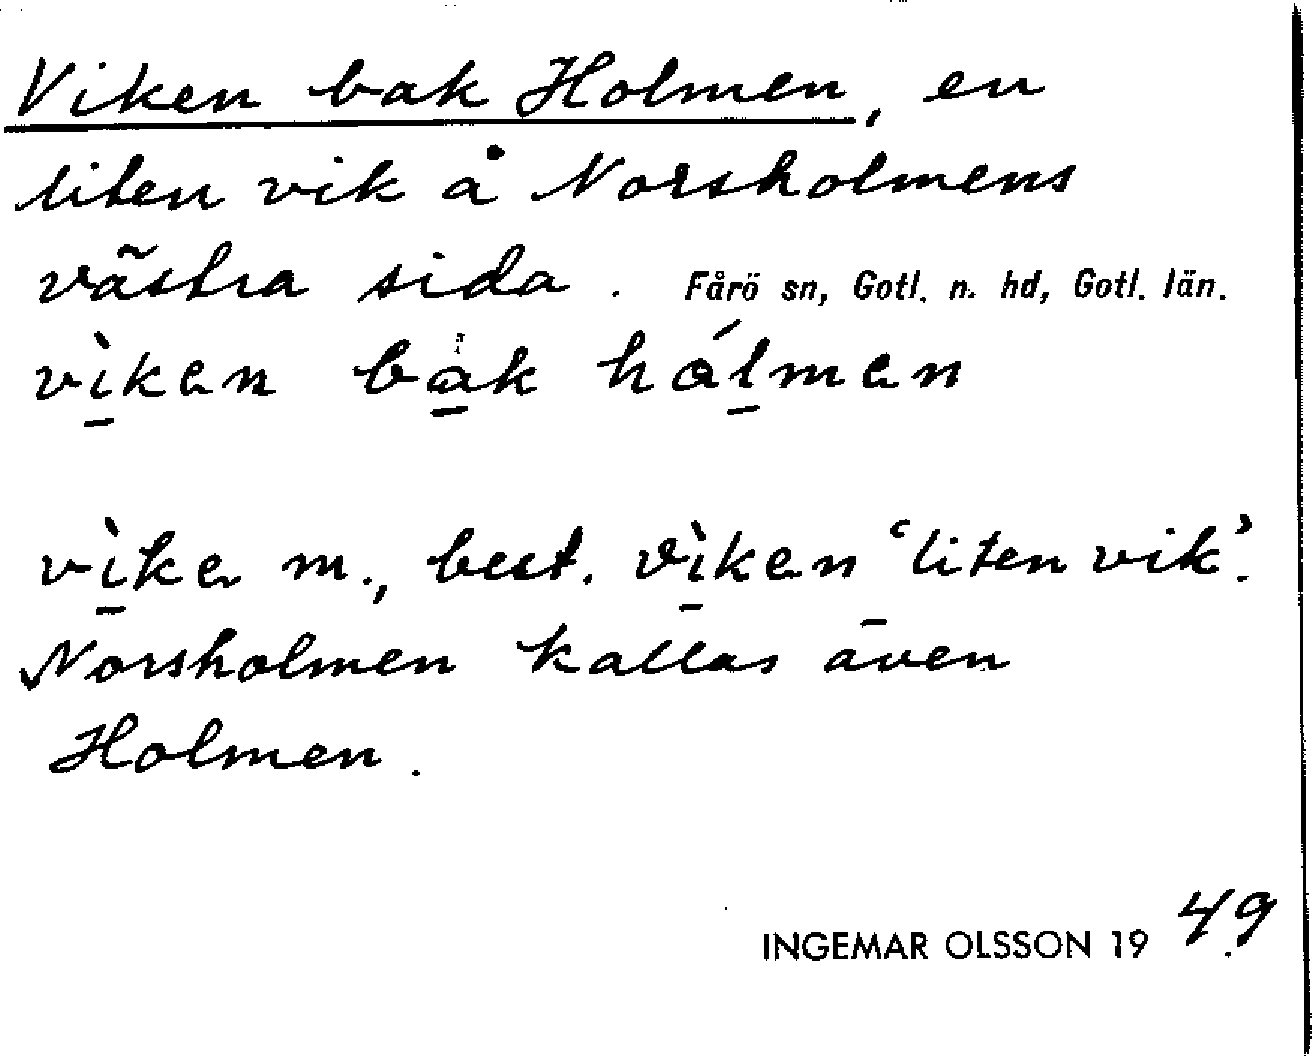 Viken bak Holmen, en
liten vik å Norsholmens
västra sida. Fårö sn, Gotl. n. hd, Gotl. län.
vì̱ken bà̱k håḻ́men
vì̱ke m., best. vì̱ken ‘liten vik’.
Norsholmen kallas även
Holmen.
INGEMAR OLSSON 19 49.